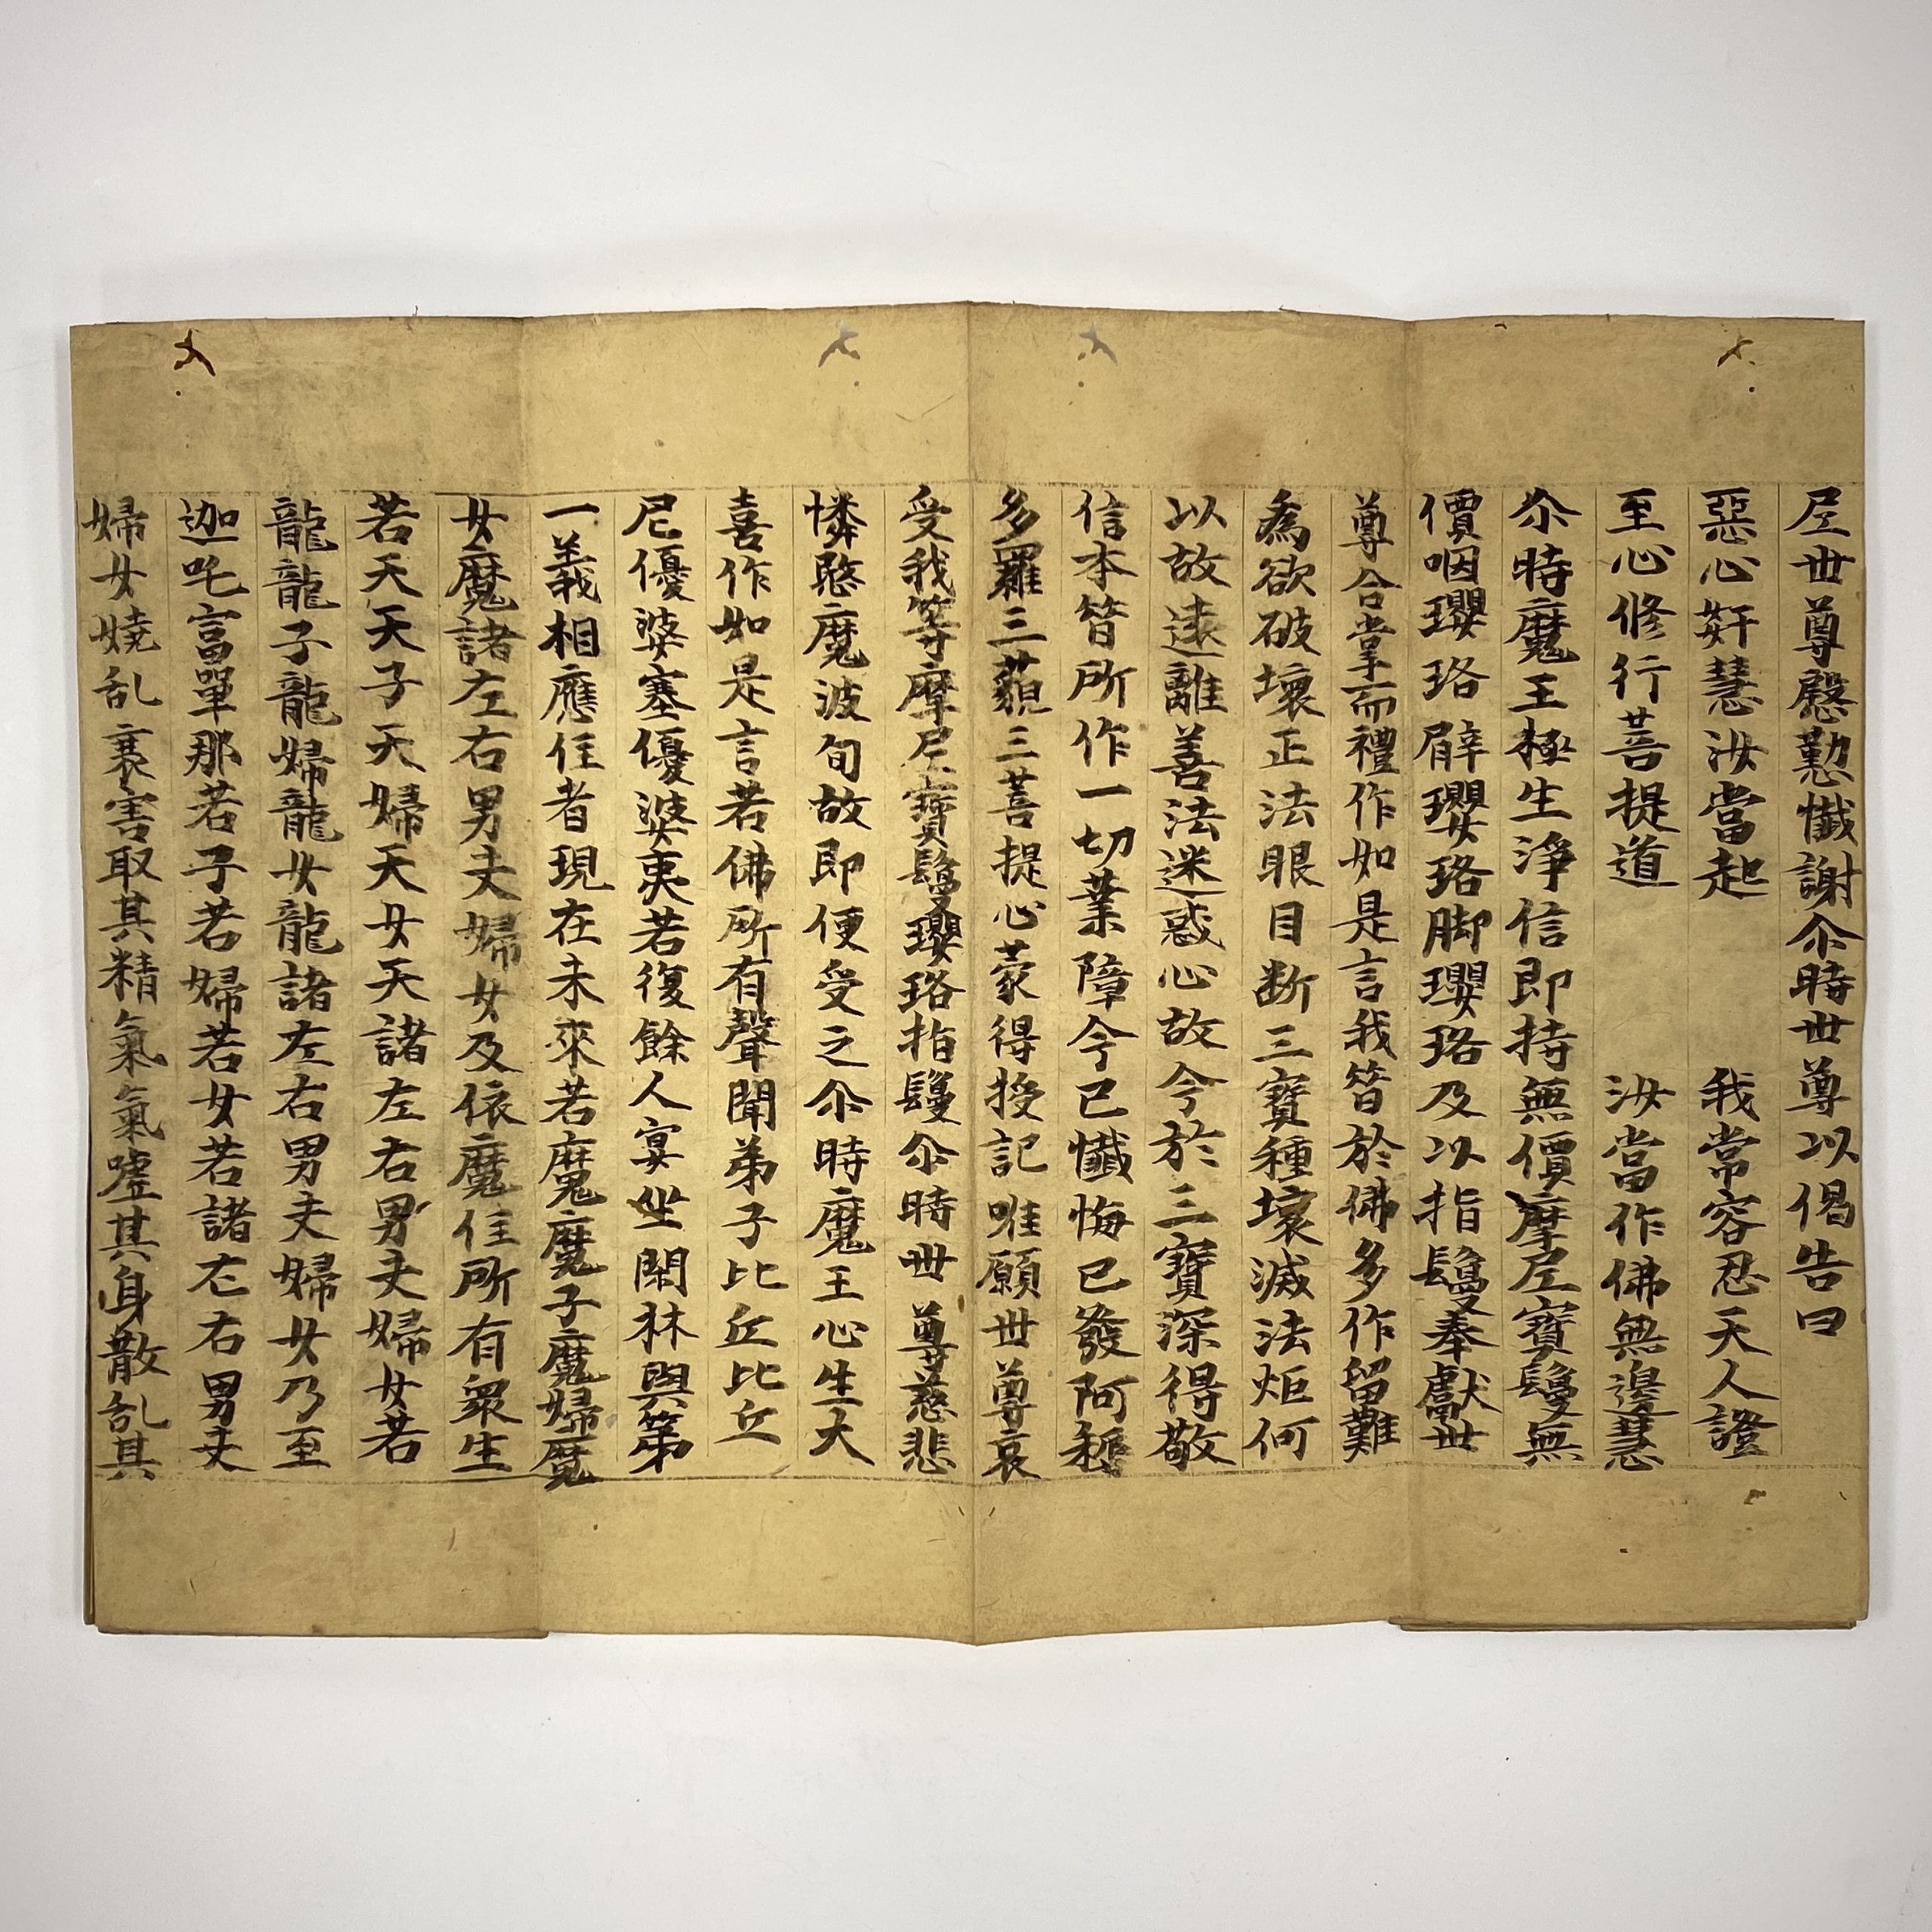 尼世尊慇懃懺謝尒時世尊以偈告曰
惡心奸慧汝當起　我常容忍天人證
至心修行菩提道　汝當作佛無邊慧
尒時魔王極生淨信即持無價摩尼寶鬘無
價咽瓔珞臂瓔珞脚瓔珞及以指鬘奉獻世
尊合掌而禮作如是言我昔於佛多作留難
為欲破壞正法眼目断三寶種壞滅法炬何
以故遠離善法迷惑心故今於三寶深得敬
信本昔所作一切業障今已懺悔已發阿耨
多羅三藐三菩提心蒙得授記唯願世尊哀
受我等摩尼寶鬘瓔珞指鬘尒時世尊慈悲
憐愍魔波旬故即便受之尒時魔王心生大
喜作如是言若佛所有聲聞弟子比丘比丘
尼優婆塞優婆夷若復餘人宴坐閑林與第
一義相應住者現在未來若魔魔子魔婦魔
女魔諸左右男夫婦女及依魔住所有眾生
若天天子天婦天女天諸左右男夫婦女若
龍龍子龍婦龍女龍諸左右男夫婦女乃至
迦吒富單那若子若婦若女若諸左右男夫
婦女嬈乱衰害取其精氣氣噓其身散乱其